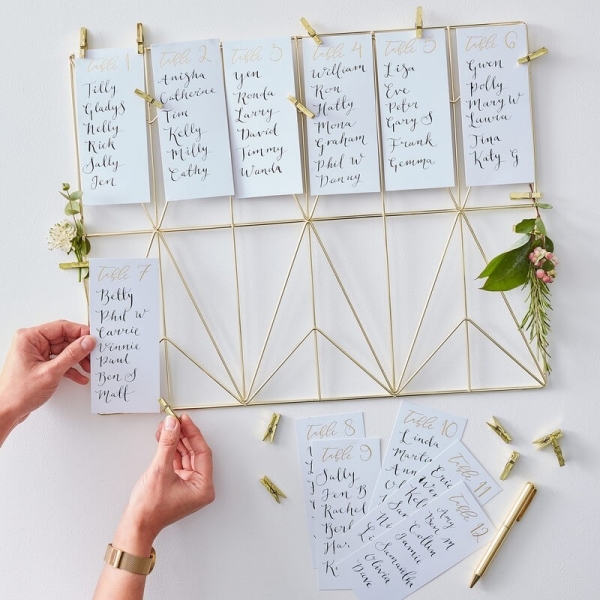 Table 1
Tilly
Gladys
Nelly
Rick
Sally
Jen
Table 2
Anisha
Catherine
Tim
Kelly
Milly
Cathy
Table 3
Yen
Ronda
Larry
David
Timmy
Wanda
Table 4
William
Ron
Hatty
Mona
Graham
Phil W
Danny
Table 5
Lisa
Eve
Peter
Gary S
Frank
Gemma
Table 6
Gwen
Polly
Mary W
Lauria
Tina
Katy G
Table 7
Betty
Phil W
Carrie
Vinnie
Paul
Ben S
Matt
Table 8
Table 9
Sally
Jen B
Rachel
Table 10
Linda
Table 11
Eric
Table 12
Amy
Ben M
Collin
Jamie
Samantha
Olivia
Dave